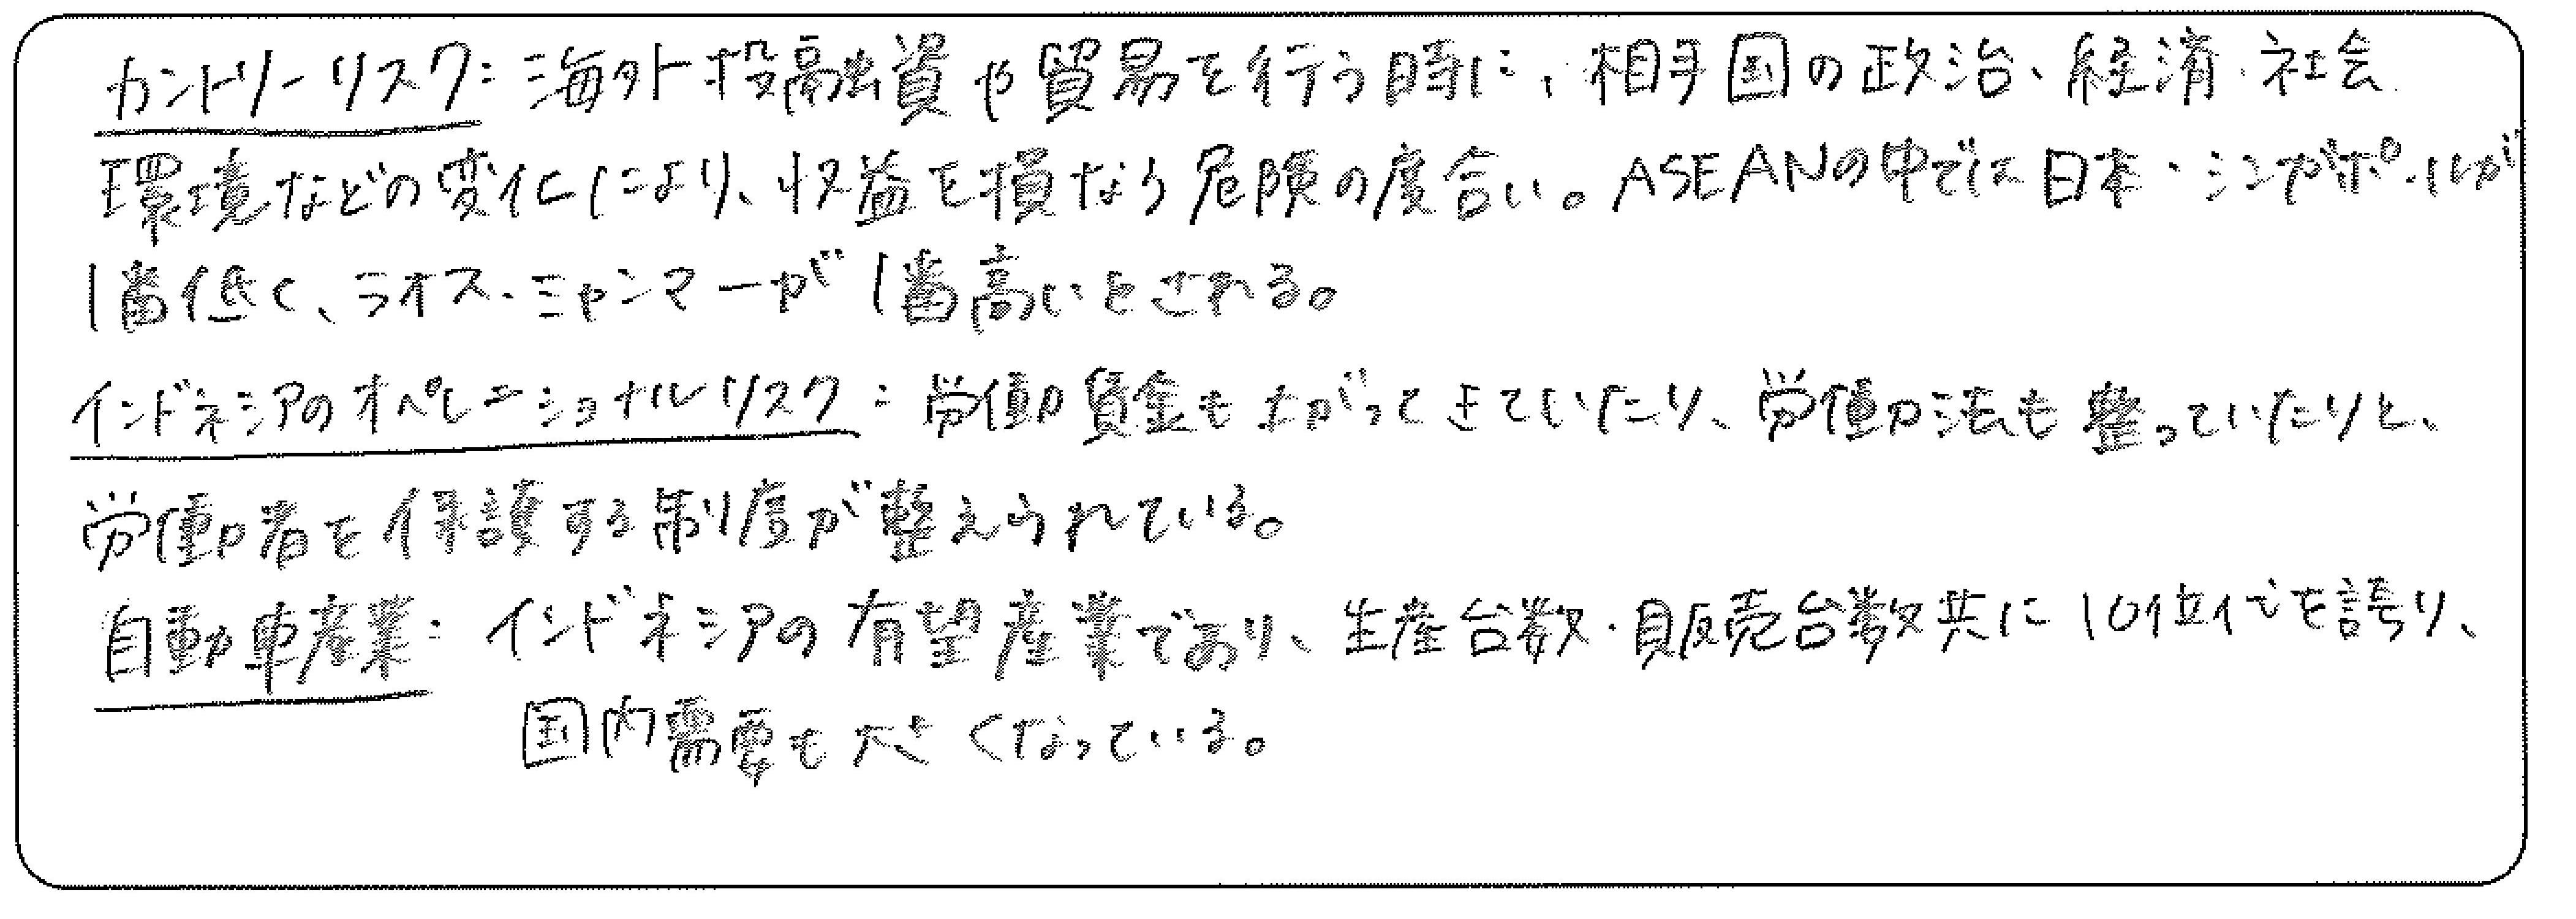 カントリーリスク：海外投融資や貿易を行う時に、相手国の政治、経済、社会
環境などの変化により、収益を損なう危険の度合い。ASEANの中では日本・シンガポールが
1番低く、ラオス・ミャンマーが1番高いとされる。
インドネシアのオペレーショナルリスク：労働賃金も上がってきていたり、労働法も整っていたりと、
労働者を保護する制度が整えられている。
自動車産業：インドネシアの有望産業であり、生産台数・販売台数共に10位代を誇り、
国内需要も大きくなっている。